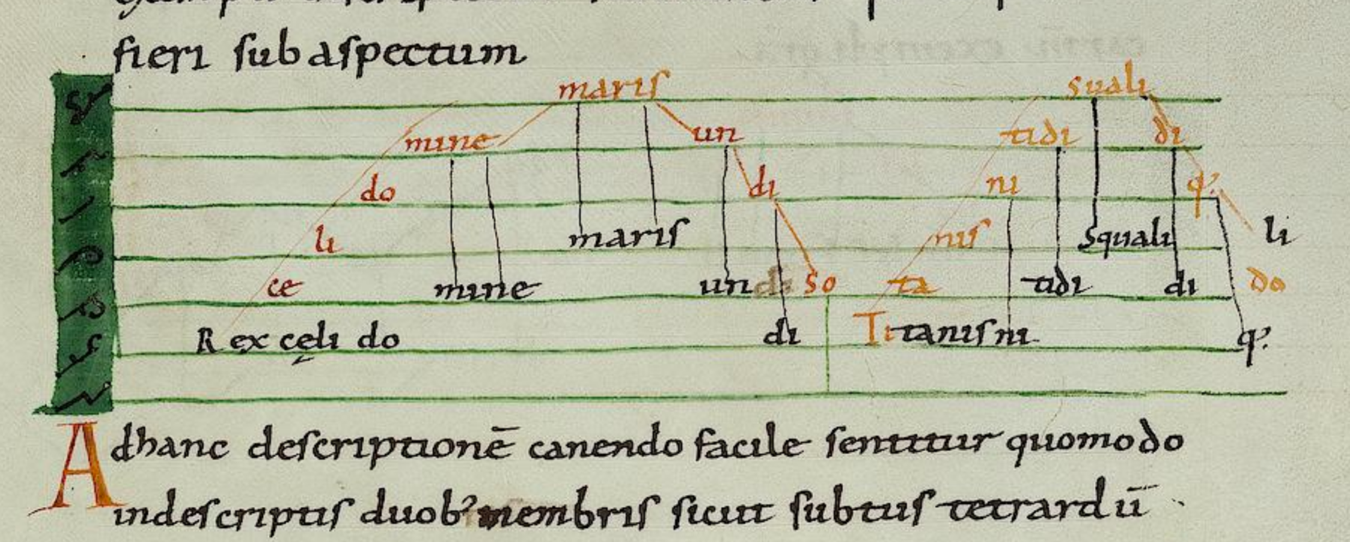 fieri sub aspectum
maris suali
mine un tidi di
do di ni q:
li maris nis squali li
ce mine un so ta tidi di do
Rex cęli do di Titanis ni q:
Adhanc descriptionē canendo facile sentitur quomodo
indescriptis duob; membris sicut subtus tetrardū